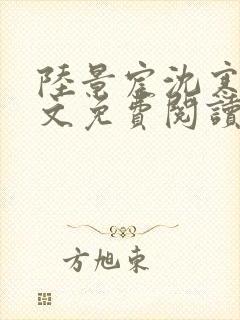 陸景宦沈寒
文免費閱讀
方旭東